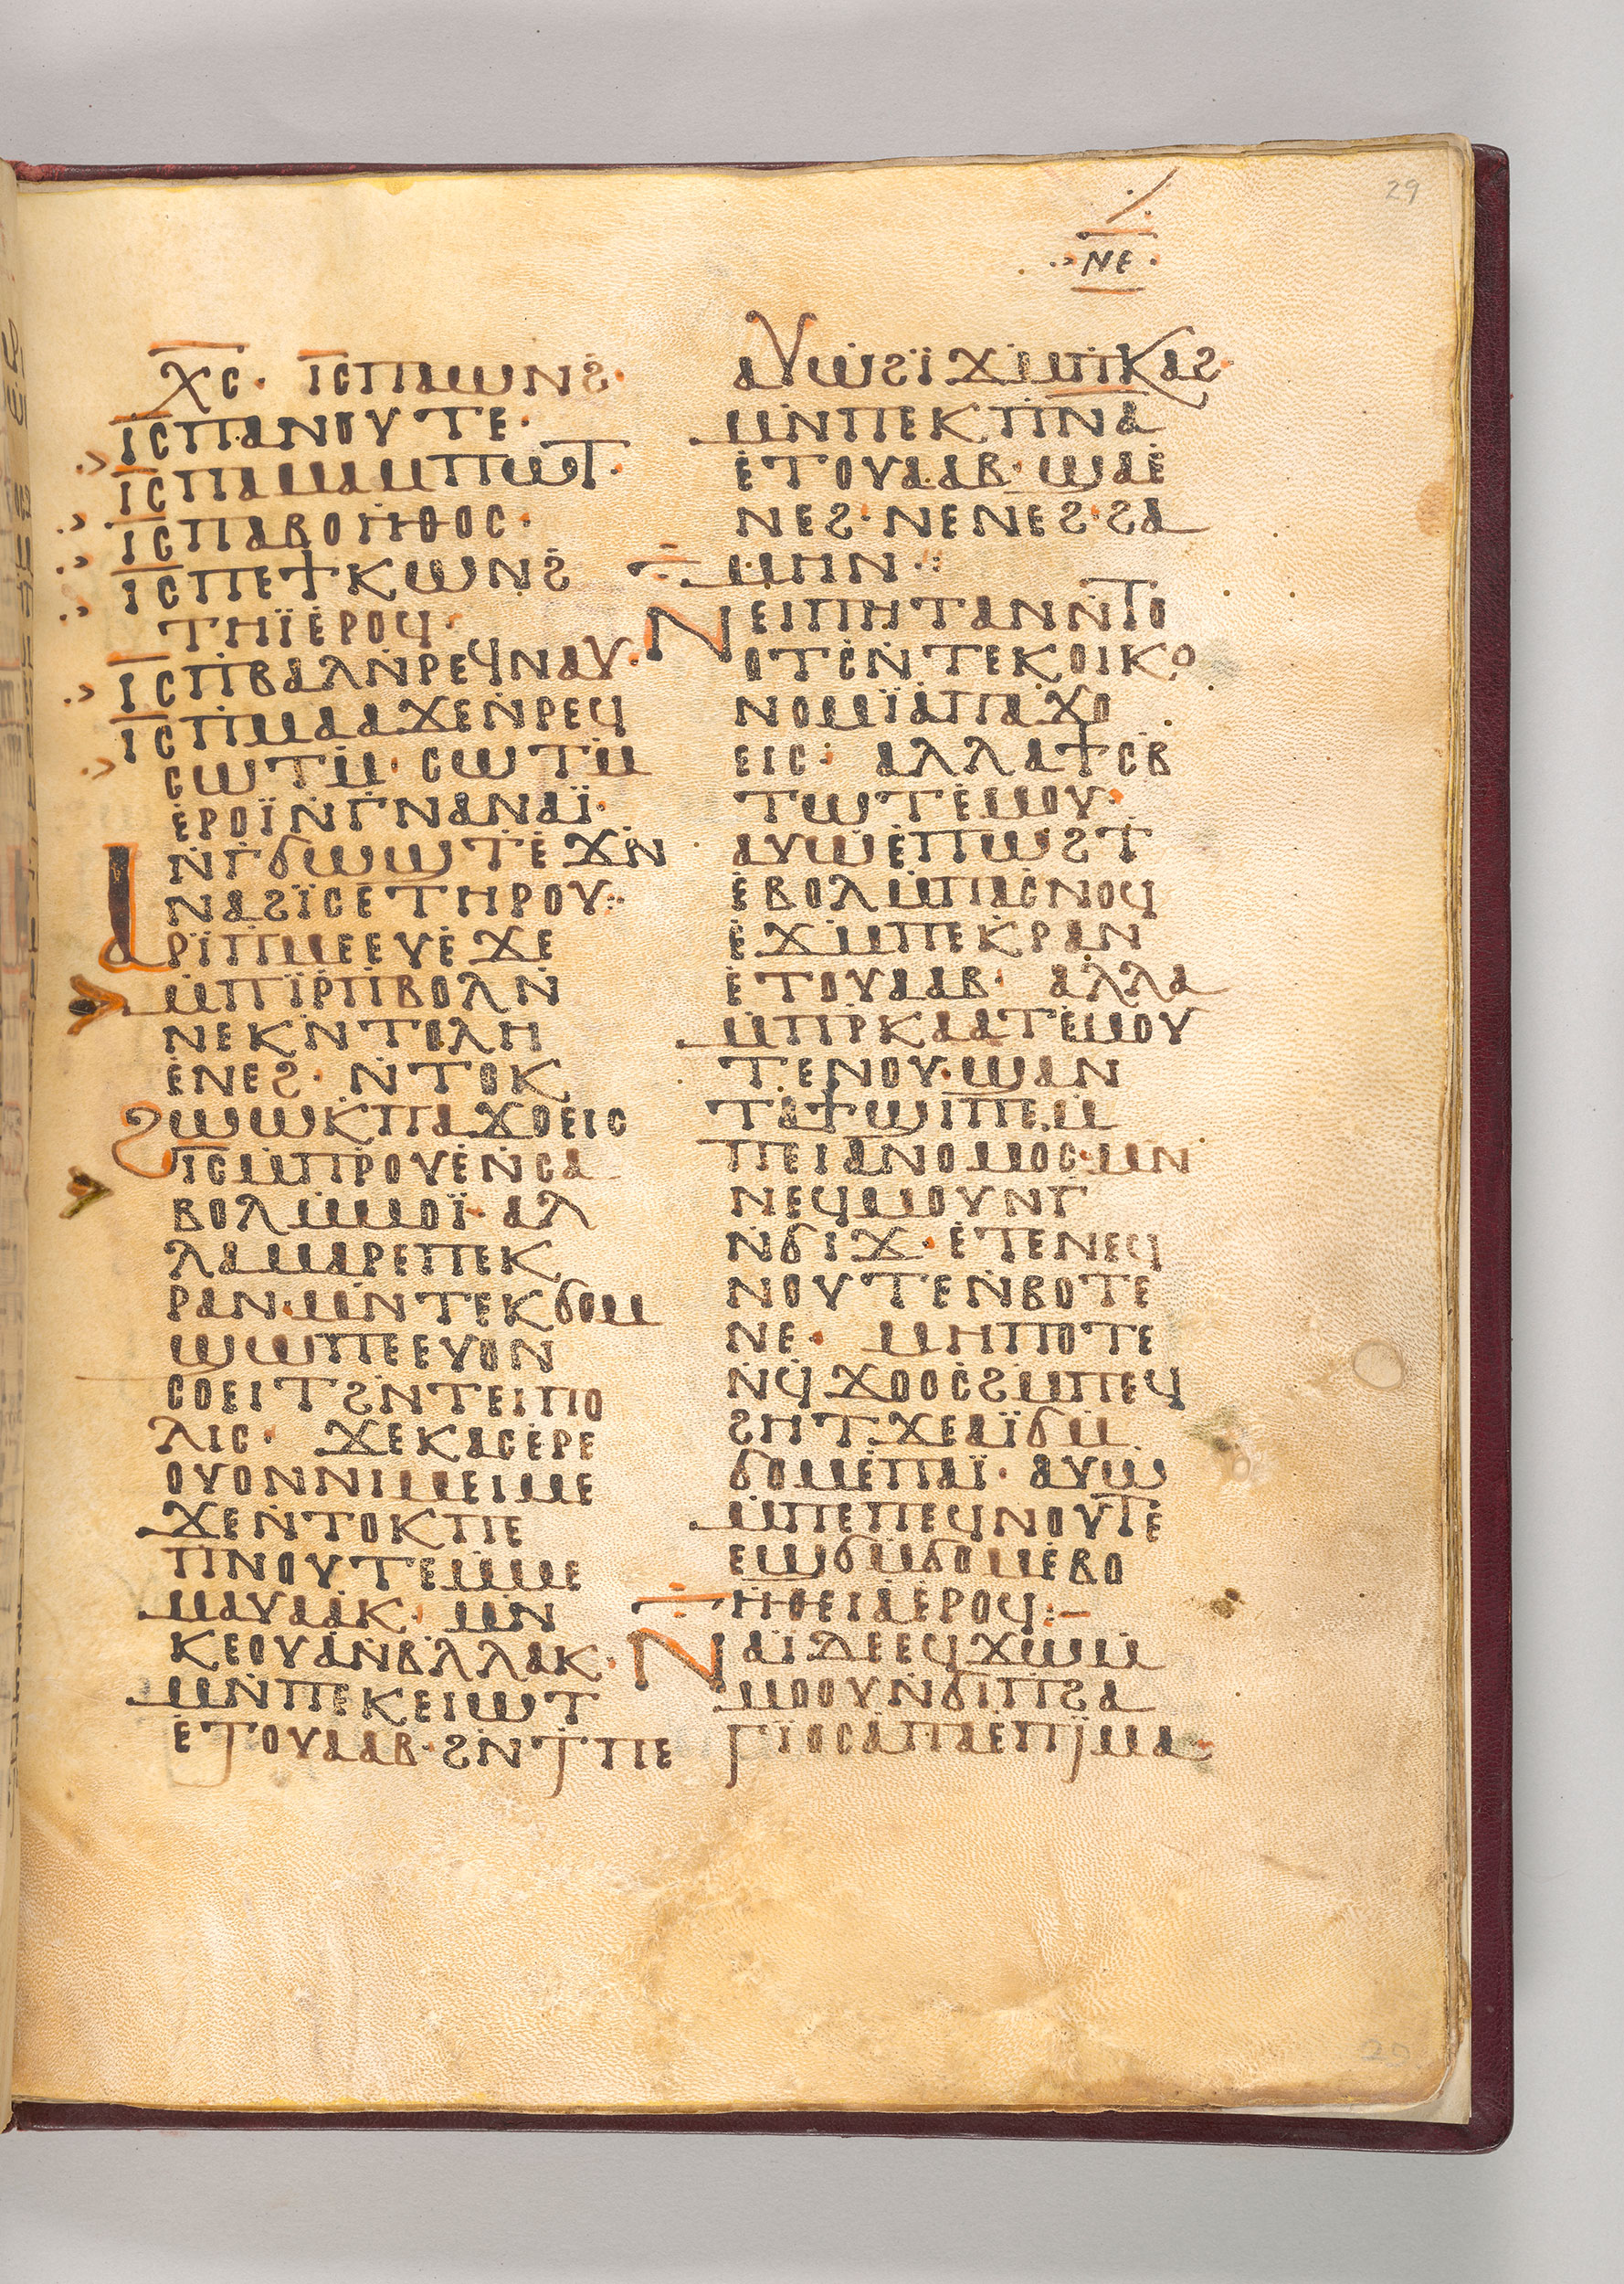 29
ⲛⲉ
ⲭ̅ⲥ̅· ⲓ̅ⲥ̅ ⲡⲁⲱⲛϩ·
ⲓ̅ⲥ̅ ⲡⲁⲛⲟⲩⲧⲉ·
ⲓ̅ⲥ̅ ⲡⲁⲙⲁⲙⲡⲱⲧ·
ⲓ̅ⲥ̅ ⲡⲁⲃⲟⲏⲑⲟⲥ·
ⲓ̅ⲥ̅ ⲡⲉϯⲕⲱⲛϩ
ⲧⲏⲓ̈ ⲉⲣⲟϥ·
ⲓ̅ⲥ̅ ⲡⲃⲁⲗ ⲛ̇ⲣⲉϥⲛⲁⲩ·
ⲓ̅ⲥ̅ ⲡⲙⲁⲁϫⲉ ⲛ̇ⲣⲉϥ
ⲥⲱⲧⲙ̇· ⲥⲱⲧⲙ̇
ⲉ̇ⲣⲟⲓ̈ ⲛ̇ⲅⲛⲁ ⲛⲁⲓ̈·
ⲛ̇ⲅϭⲱϣⲧ ⲉ̇ϫⲛ̇
ⲛⲁϩⲓ̈ⲥⲉ ⲧⲏⲣⲟⲩ:
ⲁⲣⲓ̈ⲡⲙⲉⲉⲩⲉ̇ ϫⲉ
ⲙ̇ⲡⲓ̈ⲣⲡⲃⲟⲗ ⲛ̇
ⲛⲉⲕⲛ̇ⲧⲟⲗⲏ
ⲉ̇ⲛⲉϩ· ⲛ̇ⲧⲟⲕ
ϩⲱⲱⲕ ⲡⲁϫⲟⲉⲓⲥ
ⲓ̅ⲥ̅ ⲙ̇ⲡⲣⲟⲩⲉ̇ ⲛ̇ⲥⲁ
ⲃⲟⲗ ⲙ̇ⲙⲟⲓ̈· ⲁⲗ
ⲗⲁ ⲙⲁⲣⲉⲡⲉⲕ
ⲣⲁⲛ· ⲙⲛ̇ⲧⲉⲕϭⲟⲙ
ϣⲱⲡⲉ ⲉⲩⲟⲛ
ⲥⲟⲉⲓⲧ ϩⲛ̇ⲧⲉⲓⲡⲟ
ⲗⲓⲥ· ϫⲉⲕⲁⲥ ⲉ̇ⲣⲉ
ⲟⲩⲟⲛ ⲛⲓⲙ ⲉⲓⲙⲉ
ϫⲉ ⲛ̇ⲧⲟⲕ ⲡⲉ
ⲡⲛⲟⲩⲧⲉ ⲙ̇ⲙⲉ
ⲙⲁⲩⲁⲁⲕ· ⲙⲛ̇
ⲕⲉⲟⲩⲁ ⲛ̇ⲃⲗ̈ⲗⲁⲕ·
ⲙⲛ̇ⲡⲉⲕⲉⲓⲱⲧ
ⲉ̇ⲧⲟⲩⲁⲁⲃ· ϩⲛ̇ⲧⲡⲉ
ⲁⲩⲱ ϩⲓ̈ϫⲙ̇ⲡⲕⲁϩ·
ⲙⲛ̇ⲡⲉⲕⲡ̅ⲛ̅ⲁ̅
ⲉ̇ⲧⲟⲩⲁⲁⲃ· ϣⲁ ⲉ̇
ⲛⲉϩ· ⲛⲉⲛⲉϩ· ϩⲁ
ⲙⲏⲛ:
ⲛⲉⲓⲡⲏⲧ ⲁⲛ ⲛ̇ⲧⲟ
ⲟⲧⲥ ⲛ̇ⲧⲉⲕⲟⲓⲕⲟ
ⲛⲟⲙⲓ̈ⲁ ⲡⲁϫⲟ
ⲉⲓⲥ· ⲁⲗⲗⲁ ϯⲥⲃ̇
ⲧⲱⲧ ⲉ̇ⲙⲟⲩ·
ⲁⲩⲱ ⲉ̇ⲡⲱϩⲧ
ⲉ̇ⲃⲟⲗ ⲙ̇ⲡⲁⲥⲛⲟϥ
ⲉ̇ϫⲙ̇ⲡⲉⲕⲣⲁⲛ
ⲉ̇ⲧⲟⲩⲁⲁⲃ· ⲁⲗⲗⲁ
ⲙ̇ⲡⲣⲕⲁⲁⲧ ⲉ̇ⲙⲟⲩ
ⲧⲉⲛⲟⲩ· ϣⲁⲛ
ⲧⲁϯϣⲓⲡⲉ ⲙ̇
ⲡⲉⲓⲁⲛⲟⲙⲟⲥ· ⲙⲛ
ⲛⲉϥⲙⲟⲩⲛⲅ
ⲛ̇ϭⲓϫ· ⲉ̇ⲧⲉ ⲛⲉϥ
ⲛⲟⲩⲧⲉ ⲛ̇ⲃⲟⲧⲉ
ⲛⲉ· ⲙⲏⲡⲟⲧⲉ
ⲛ̇ϥϫⲟⲟⲥ ϩⲙ̇ⲡⲉϥ
ϩⲏⲧ ϫⲉ ⲁⲓ̈ϭⲙ̇
ϭⲟⲙ ⲉ̇ⲡⲁⲓ̈· ⲁⲩⲱ
ⲙ̇ⲡⲉⲡⲉϥⲛⲟⲩⲧⲉ
ⲉϣϭⲙ̇ϭⲟⲙ ⲉ̇ⲃⲟ
ⲏⲑⲉⲓⲁ ⲉⲣⲟϥ:
ⲛⲁⲓ̈ ⲇⲉ ⲉϥϫⲱ ⲙ̇
ⲙⲟⲟⲩ ⲛ̇ϭⲓ ⲡϩⲁ
ⲅⲓⲟⲥ ⲁ̇ⲡⲁ ⲉ̇ⲡⲓⲙⲁ
29